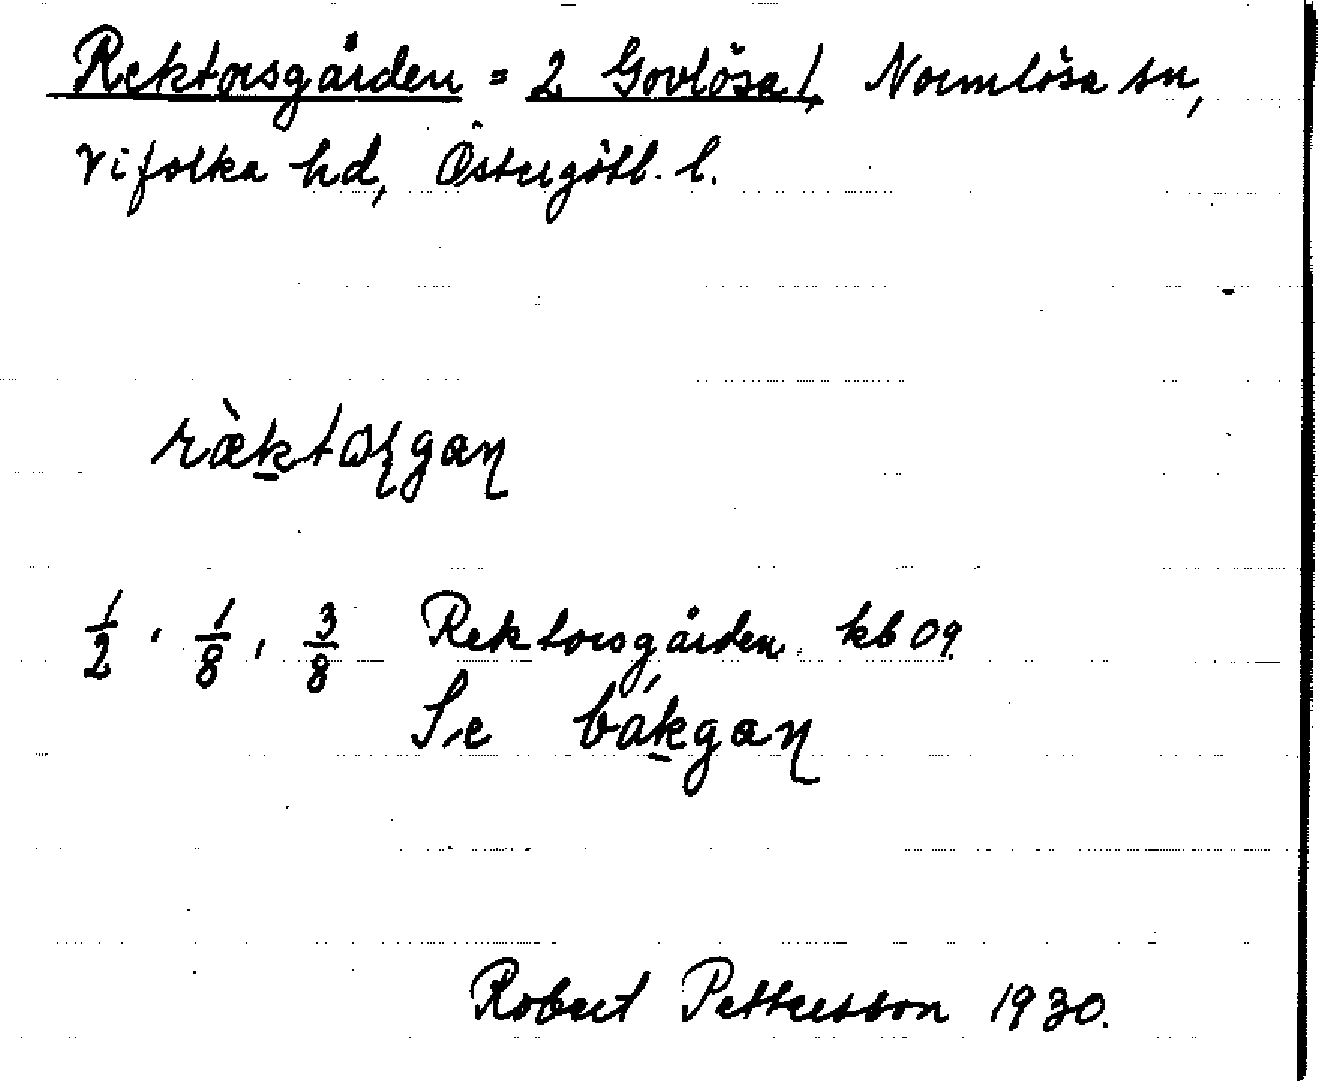 Rektorsgården = 2 Govlösa 1, Normlösa sn,
Vifolka hd, Östergötl. l.
ràktoʂgaɳ
1/2, 1/8, 3/8 Rektorsgården kb 09.
Se bákgaɳ
Robert Pettersson 1930.